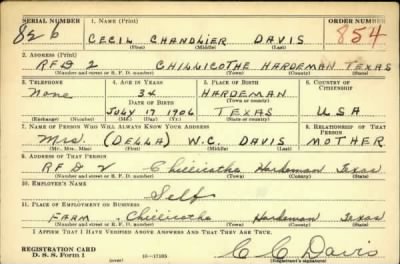 SERIAL NUMBER 1. NAME (Print) ORDER NUMBER
826 CECIL CHANDLIER DAVIS 854
(First) (Middle) (Last)
2. ADDRESS (Print)
RFD 2 CHILLICOTHE HARDEMAN TEXAS
(Number and street or R. F. D. number) (Town) (County) (State)
3. TELEPHONE 4. AGE IN YEARS 5. PLACE OF BIRTH 6. COUNTRY OF CITIZENSHIP
None 34 HARDEMAN
DATE OF BIRTH (Town or county)
JULY 17 1906 TEXAS USA
(Mo.) (Day) (Yr.) (State or country)
7. NAME OF PERSON WHO WILL ALWAYS KNOW YOUR ADDRESS 8. RELATIONSHIP OF THAT PERSON
Mrs. (DELLA) W.C. DAVIS MOTHER
(Mr., Mrs., Miss) (First) (Middle) (Last)
9. ADDRESS OF THAT PERSON
RFD 2 Chillicothe Hardeman Texas
(Number and street or R. F. D. number) (Town) (County) (State)
10. EMPLOYER'S NAME
Self
11. PLACE OF EMPLOYMENT OR BUSINESS
FARM Chillicothe Hardeman Texas
(Number and street or R. F. D. number) (Town) (County) (State)
I AFFIRM THAT I HAVE VERIFIED ABOVE ANSWERS AND THAT THEY ARE TRUE.
REGISTRATION CARD
D. S. S. Form 1 (over) 16—17105 C C Davis
(Registrant's signature)